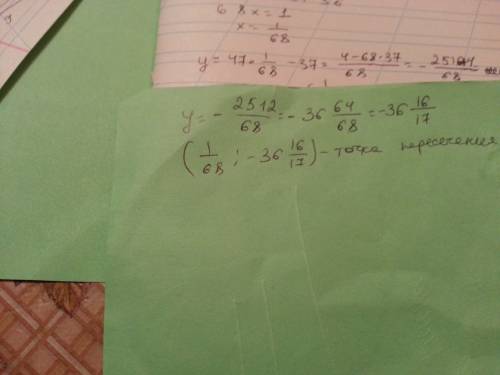 68x = 1
x = 1/68
y = 47 · 1/68 - 37 = (4 - 68·37)/68 = - 2512/68
y = - 2512/68 = - 36 64/68 = -36 16/17
(1/68 ; -36 16/17) - точка пересечения